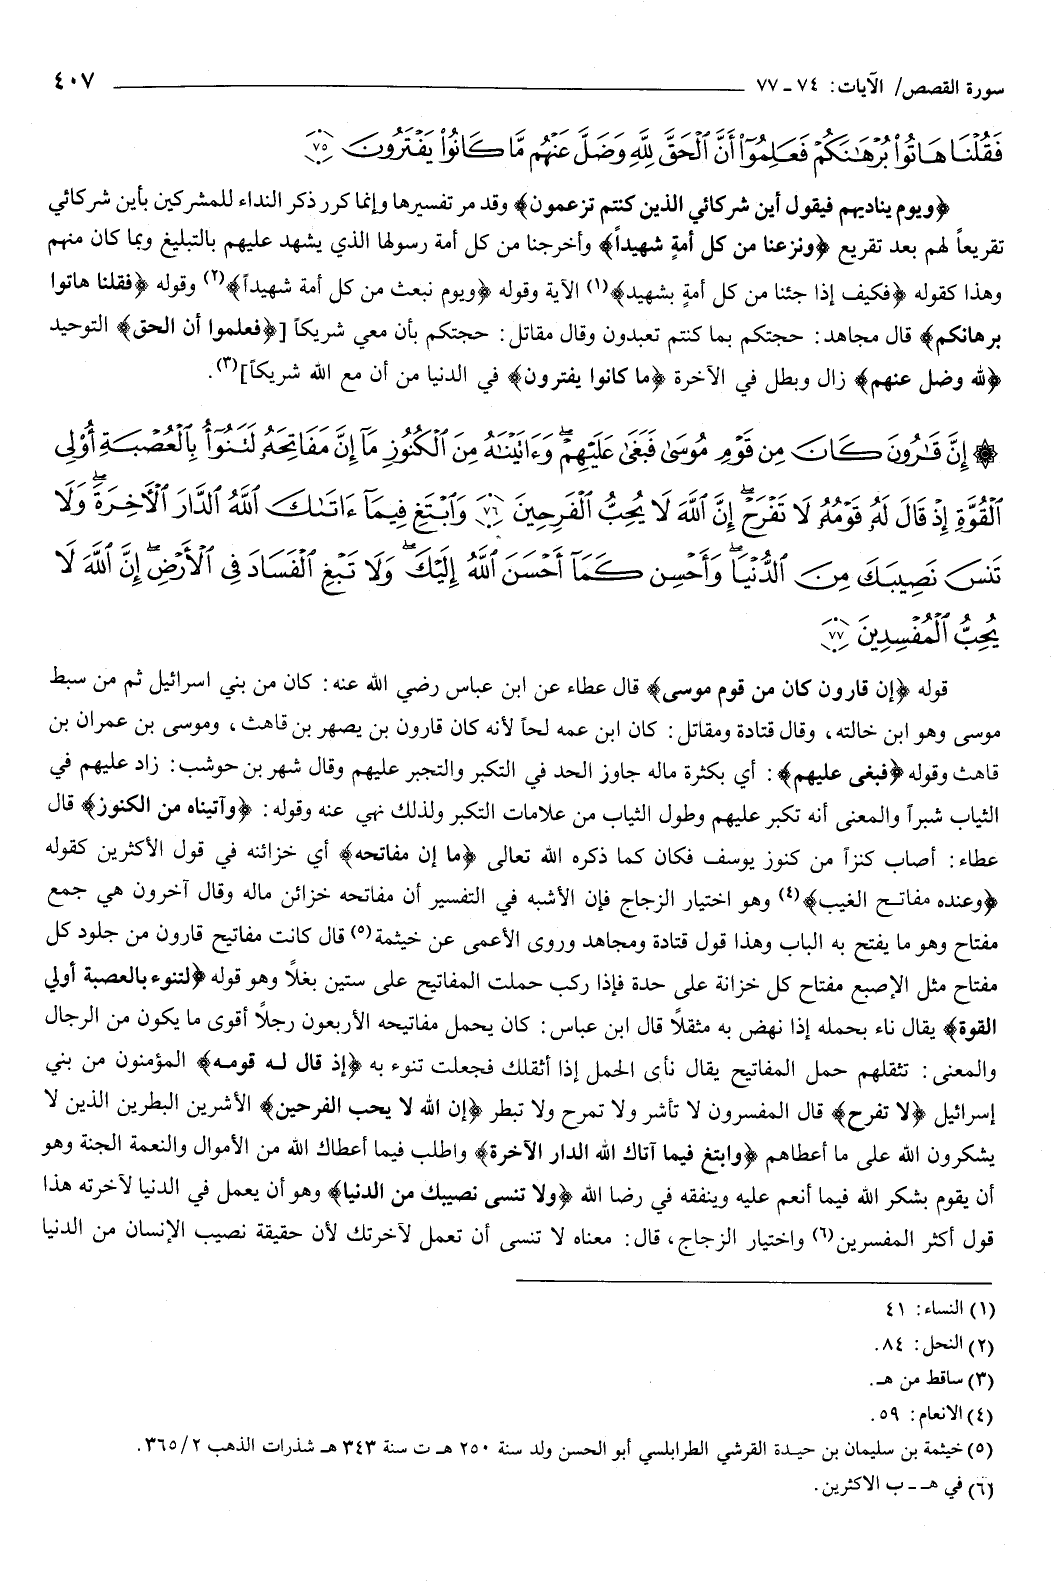 سورة القصص/ الآيات: ٧٤ - ٧٧ ٤٠٧
فَقُلْنَا هَاتُوا۟ بُرْهَٰنَكُمْ فَعَلِمُوٓا۟ أَنَّ ٱلْحَقَّ لِلَّهِ وَضَلَّ عَنْهُم مَّا كَانُوا۟ يَفْتَرُونَ ٧٥
﴿ويوم يناديهم فيقول أين شركائي الذين كنتم تزعمون﴾ وقد مر تفسيرها وإنما كرر ذكر النداء للمشركين بأين شركائي
تقريعاً لهم بعد تقريع ﴿ونزعنا من كل أمةٍ شهيداً﴾ وأخرجنا من كل أمة رسولها الذي يشهد عليهم بالتبليغ وبما كان منهم
وهذا كقوله ﴿فكيف إذا جئنا من كل أمةٍ بشهيد﴾(١) الآية وقوله ﴿ويوم نبعث من كل أمة شهيداً﴾(٢) وقوله ﴿فقلنا هاتوا
برهانكم﴾ قال مجاهد: حجتكم بما كنتم تعبدون وقال مقاتل: حجتكم بأن معي شريكاً [﴿فعلموا أن الحق﴾ التوحيد
﴿لله وضل عنهم﴾ زال وبطل في الآخرة ﴿ما كانوا يفترون﴾ في الدنيا من أن مع الله شريكاً](٣).
۞ إِنَّ قَٰرُونَ كَانَ مِن قَوْمِ مُوسَىٰ فَبَغَىٰ عَلَيْهِمْ ۖ وَءَاتَيْنَٰهُ مِنَ ٱلْكُنُوزِ مَآ إِنَّ مَفَاتِحَهُۥ لَتَنُوٓأُ بِٱلْعُصْبَةِ أُو۟لِى
ٱلْقُوَّةِ إِذْ قَالَ لَهُۥ قَوْمُهُۥ لَا تَفْرَحْ ۖ إِنَّ ٱللَّهَ لَا يُحِبُّ ٱلْفَرِحِينَ ٧٦ وَٱبْتَغِ فِيمَآ ءَاتَىٰكَ ٱللَّهُ ٱلدَّارَ ٱلْءَاخِرَةَ ۖ وَلَا
تَنسَ نَصِيبَكَ مِنَ ٱلدُّنْيَا ۖ وَأَحْسِن كَمَآ أَحْسَنَ ٱللَّهُ إِلَيْكَ ۖ وَلَا تَبْغِ ٱلْفَسَادَ فِى ٱلْأَرْضِ ۖ إِنَّ ٱللَّهَ لَا
يُحِبُّ ٱلْمُفْسِدِينَ ٧٧
قوله ﴿إن قارون كان من قوم موسى﴾ قال عطاء عن ابن عباس رضي الله عنه: كان من بني اسرائيل ثم من سبط
موسى وهو ابن خالته، وقال قتادة ومقاتل: كان ابن عمه لحاً لأنه كان قارون بن يصهر بن قاهث، وموسى بن عمران بن
قاهث وقوله ﴿فبغى عليهم﴾: أي بكثرة ماله جاوز الحد في التكبر والتجبر عليهم وقال شهر بن حوشب: زاد عليهم في
الثياب شبراً والمعنى أنه تكبر عليهم وطول الثياب من علامات التكبر ولذلك نهي عنه وقوله: ﴿وآتيناه من الكنوز﴾ قال
عطاء: أصاب كنزاً من كنوز يوسف فكان كما ذكره الله تعالى ﴿ما إن مفاتحه﴾ أي خزائنه في قول الأكثرين كقوله
﴿وعنده مفاتح الغيب﴾(٤) وهو اختيار الزجاج فإن الأشبه في التفسير أن مفاتحه خزائن ماله وقال آخرون هي جمع
مفتاح وهو ما يفتح به الباب وهذا قول قتادة ومجاهد وروى الأعمى عن خيثمة(٥) قال كانت مفاتيح قارون من جلود كل
مفتاح مثل الإصبع مفتاح كل خزانة على حدة فإذا ركب حملت المفاتيح على ستين بغلاً وهو قوله ﴿لتنوء بالعصبة أولي
القوة﴾ يقال ناء بحمله إذا نهض به مثقلاً قال ابن عباس: كان يحمل مفاتيحه الأربعون رجلاً أقوى ما يكون من الرجال
والمعنى: تثقلهم حمل المفاتيح يقال نأى الحمل إذا أثقلك فجعلت تنوء به ﴿إذ قال لـه قومـه﴾ المؤمنون من بني
إسرائيل ﴿لا تفرح﴾ قال المفسرون لا تأشر ولا تمرح ولا تبطر ﴿إن الله لا يحب الفرحين﴾ الأشرين البطرين الذين لا
يشكرون الله على ما أعطاهم ﴿وابتغ فيما آتاك الله الدار الآخرة﴾ واطلب فيما أعطاك الله من الأموال والنعمة الجنة وهو
أن يقوم بشكر الله فيما أنعم عليه وينفقه في رضا الله ﴿ولا تنسى نصيبك من الدنيا﴾ وهو أن يعمل في الدنيا لآخرته هذا
قول أكثر المفسرين(٦) واختيار الزجاج، قال: معناه لا تنسى أن تعمل لآخرتك لأن حقيقة نصيب الإنسان من الدنيا
(١) النساء: ٤١
(٢) النحل: ٨٤.
(٣) ساقط من هـ.
(٤) الانعام: ٥٩.
(٥) خيثمة بن سليمان بن حيدة القرشي الطرابلسي أبو الحسن ولد سنة ٢٥٠ هـ ت سنة ٣٤٣ هـ شذرات الذهب ٣٦٥/٢.
(٦) في هـ - ب الاكثرين.